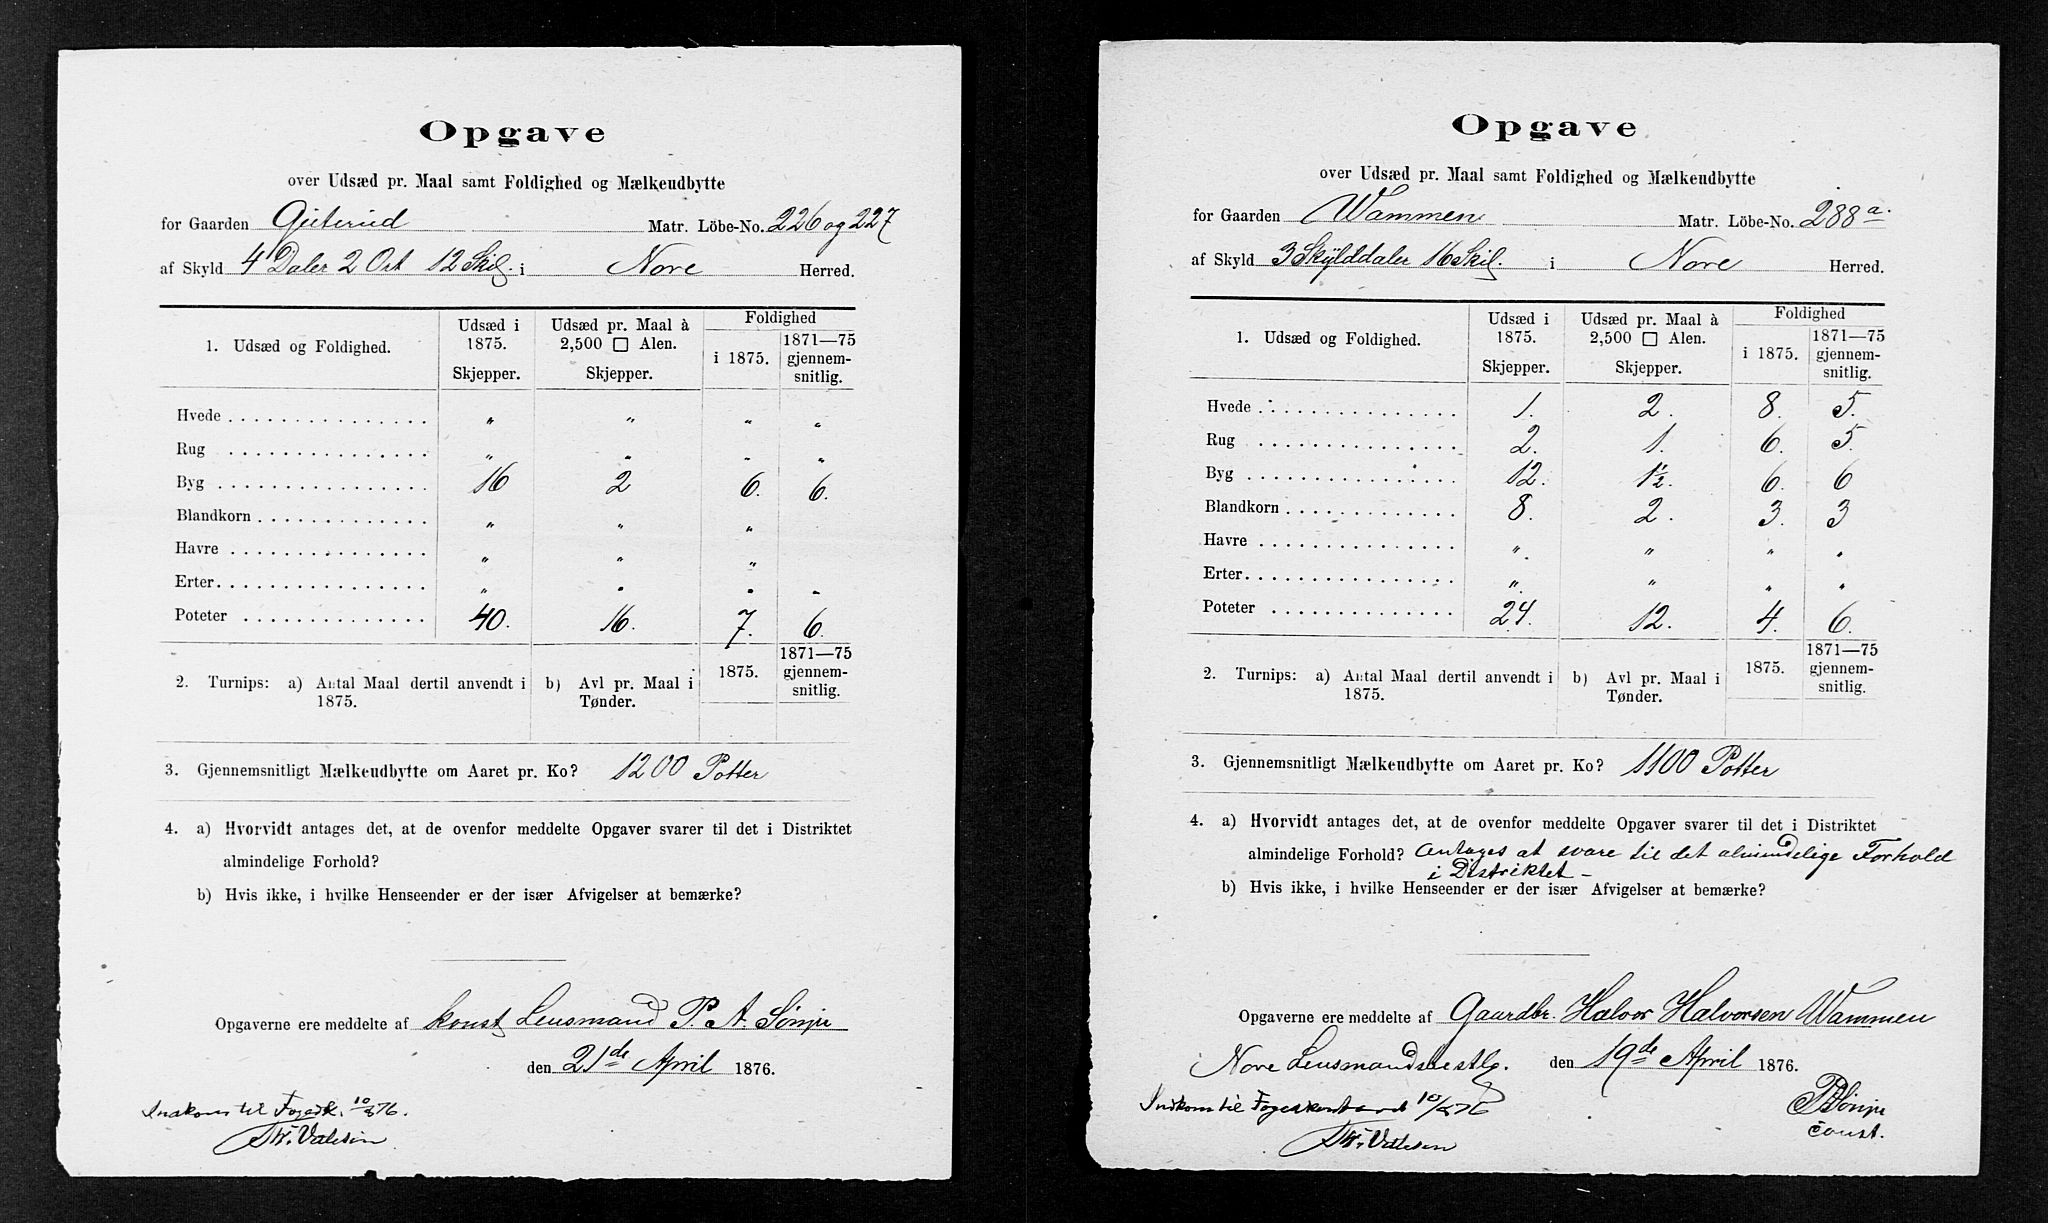 Opgave
over Udsæd pr. Maal samt Foldighed og Mælkeudbytte
for Gaarden Gjeterud Matr. Löbe-No. 226 og 227
af Skyld 4 Daler 2 Ort 12 Skil. i Nore Herred.
1. Udsæd og Foldighed. Udsæd i 1875. Skjepper. Udsæd pr. Maal à 2,500 □ Alen. Skjepper. Foldighed i 1875. 1871—75 gjennem-snitlig.
Hvede . . . . . . . . . . . . . . . " " " "
Rug . . . . . . . . . . . . . . . " " " "
Byg . . . . . . . . . . . . . . . 16 2 6. 6.
Blandkorn . . . . . . . . . . . . " " "
Havre . . . . . . . . . . . . . . " " "
Erter. . . . . . . . . . . . . . . " " " "
Poteter . . . . . . . . . . . . . 40. 16. 7. 6.
2. Turnips: a) Antal Maal dertil anvendt i 1875. b) Avl pr. Maal i Tønder. 1875. 1871—75 gjennem-snitlig.
3. Gjennemsnitligt Mælkeudbytte om Aaret pr. Ko? 1200 Potter
4. a) Hvorvidt antages det, at de ovenfor meddelte Opgaver svarer til det i Distriktet
almindelige Forhold?
b) Hvis ikke, i hvilke Henseender er der især Afvigelser at bemærke?
Opgaverne ere meddelte af konst Lensmand P. A. Sønju
den 21de April 1876.
Indkom til Fogedk. 10/5 76.
Opgave
over Udsæd pr. Maal samt Foldighed og Mælkeudbytte
for Gaarden Wammen Matr. Löbe-No. 288 a.
af Skyld 3 Skylddaler 16 Skil. i Nore Herred.
1. Udsæd og Foldighed. Udsæd i 1875. Skjepper. Udsæd pr. Maal à 2,500 □ Alen. Skjepper. Foldighed i 1875. 1871—75 gjennem-snitlig.
Hvede . . . . . . . . . . . . . . . 1. 2. 8. 5.
Rug . . . . . . . . . . . . . . . 2. 1. 6. 5.
Byg . . . . . . . . . . . . . . . 12. 1½. 6. 6
Blandkorn . . . . . . . . . . . . 8. 2. 3. 3
Havre . . . . . . . . . . . . . . " " " "
Erter. . . . . . . . . . . . . . . " " " "
Poteter . . . . . . . . . . . . . 24. 12. 4. 6.
2. Turnips: a) Antal Maal dertil anvendt i 1875. b) Avl pr. Maal i Tønder. 1875. 1871—75 gjennem-snitlig.
3. Gjennemsnitligt Mælkeudbytte om Aaret pr. Ko? 1100 Potter
4. a) Hvorvidt antages det, at de ovenfor meddelte Opgaver svarer til det i Distriktet
almindelige Forhold? Antages at svare til det almindelige Forhold
i Distriktet –
b) Hvis ikke, i hvilke Henseender er der især Afvigelser at bemærke?
Opgaverne ere meddelte af Gaardbr. Halvor Halvorsen Wammen
Nore Lensmandsbestlg. den 19de April 1876.
Indkom til Fogedkontoret 10/5 76
PASønju
const.